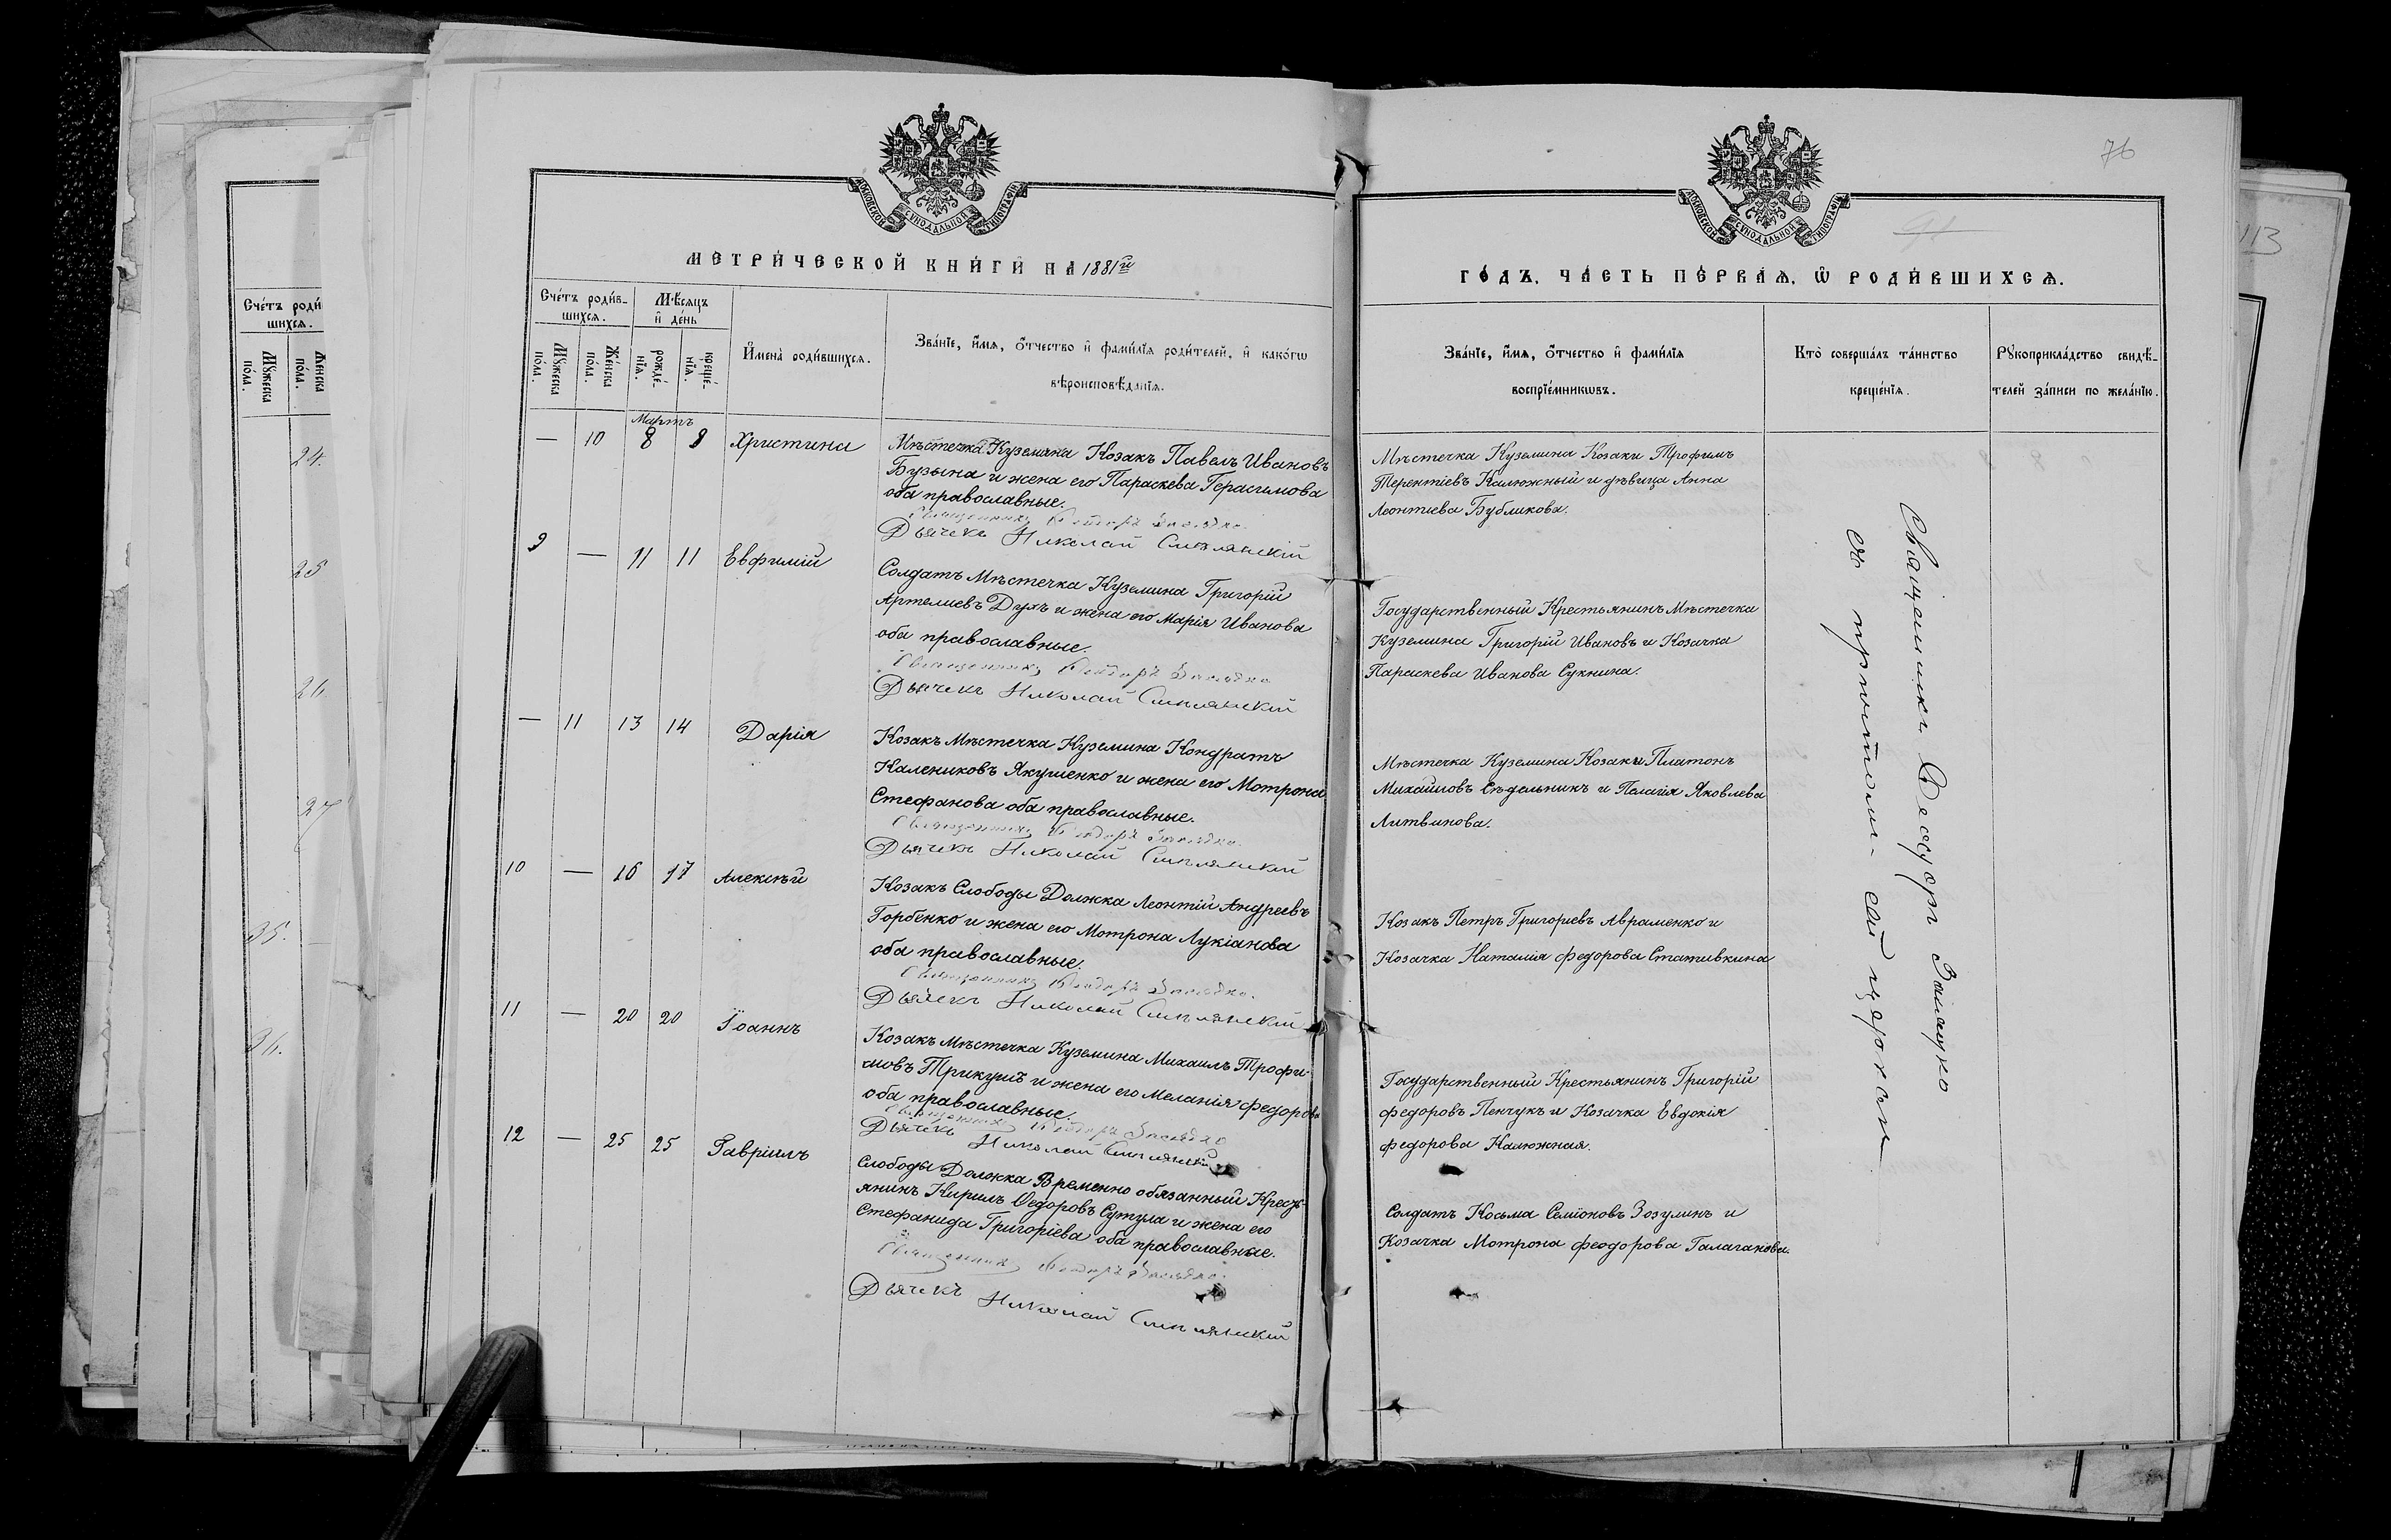 76
МОСКОВСКОЙ СѴНОДАЛЬНОЙ ТИПОГРАФІИ
МОСКОВСКОЙ СѴНОДАЛЬНОЙ ТИПОГРАФІИ
МЕТРИ́ЧЕСКОЙ КНИ́ГИ НА 1881й
ГО́ДЪ, ЧА́СТЬ ПЕ́РВАѦ, Ѡ РОДИ́ВШИХСѦ.
Сче́тъ роди́в-
шихсѧ.
Мꙋ́жеска по́ла.
Же́нска по́ла.
Мѣ́сяцъ
и де́нь
рожде́-нїѧ.
креще́-нїѧ.
Имена̀ роди́вшихсѧ.
Зва́нїе, и́мѧ, о́тчество и фами́лїѧ роди́телей, и како́гѡ
вѣроисповѣ́данїѧ.
Зва́нїе, и́мѧ, о́тчество и фами́лїѧ
воспрїе́мникѡвъ.
Кто̀ соверша́лъ та́инство
креще́нїѧ.
Рꙋкоприкла́дство свидѣ́-
телей за́писи по жела́нїю.
Мартъ
— 10 8 8 Христина
Мѣстечка Куземина Козакъ Павелъ Ивановъ
Бузына и жена его Параскева Герасимова
оба православные.
Священникъ Ѳеодоръ
Дьячекъ Николай
Мѣстечка Куземина Козаки Трофимъ
Терентіевъ Калюжный и дѣвица Анна
Леонтіева Бубликова.
9 — 11 11 Евфимій
Солдатъ Мѣстечка Куземина Григорій
Артемиевъ Духъ и жена его Марія Иванова
оба православные.
Священникъ Ѳеодоръ
Дьячекъ Николай
Государственный Крестьянинъ Мѣстечка
Куземина Григорій Ивановъ и Козачка
Параскева Иванова Сукнина.
— 11 13 14 Дарія
Козакъ Мѣстечка Куземина Кондратъ
Калениковъ Якушенко и жена его Мотрона
Стефанова оба православные.
Священникъ Ѳеодоръ
Дьячекъ Николай
Мѣстечка Куземина Козаки Платонъ
Михайловъ Сѣдельникъ и Пелагія Яковлева
Литвинова.
10 — 16 17 Алексѣй
Козакъ Слободы Должка Леонтій Андреевъ
Горбенко и жена его Мотрона Лукіанова
оба православные.
Священникъ Ѳеодоръ
Дьячекъ Николай
Козакъ Петръ Григоріевъ Авраменко и
Козачка Наталія Федорова Стативкина
11 — 20 20 Іоаннъ
Козакъ Мѣстечка Куземина Михаилъ Трофи-
мовъ Трикушъ и жена его Меланія Федорова
оба православные.
Священникъ Ѳеодоръ
Дьячекъ Николай
Государственный Крестьянинъ Григорій
Федоровъ Пенчукъ и Козачка Евдокія
Федорова Калюжная.
12 — 25 25 Гавріилъ
Слободы Должка Временно обязанный Кресть-
янинъ Кирилъ Ѳедоровъ Сутула и жена его
Стефанида Григоріева оба православные.
Священникъ Ѳеодоръ
Дьячекъ Николай
Солдатъ Косьма Семіоновъ Зозулинъ и
Козачка Мотрона Феодорова Галаганова.
Священникъ Ѳеодоръ
съ причтомъ
Сче́тъ роди́
шихсѧ.
Мꙋ́жеска по́ла.
Же́нска по́ла.
24.
25
26
27
35. —
36.
113